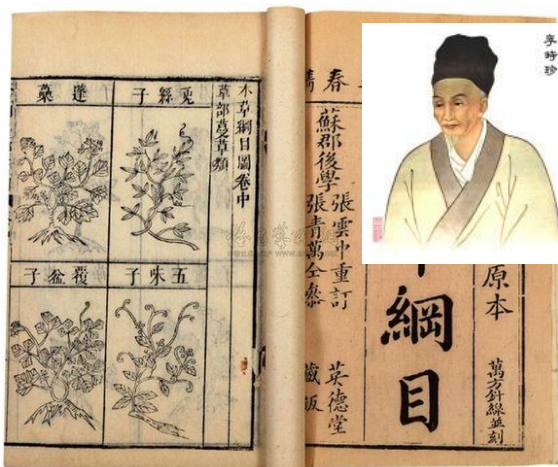 李時珍
原本
萬方針線並刻
綱目
蘇郡後學
張雲中重訂
張青萬仝參
英德堂
藏板
本草綱目圖卷中
草部蔓草類
兎絲子
蓬蘽
五味子
覆盆子